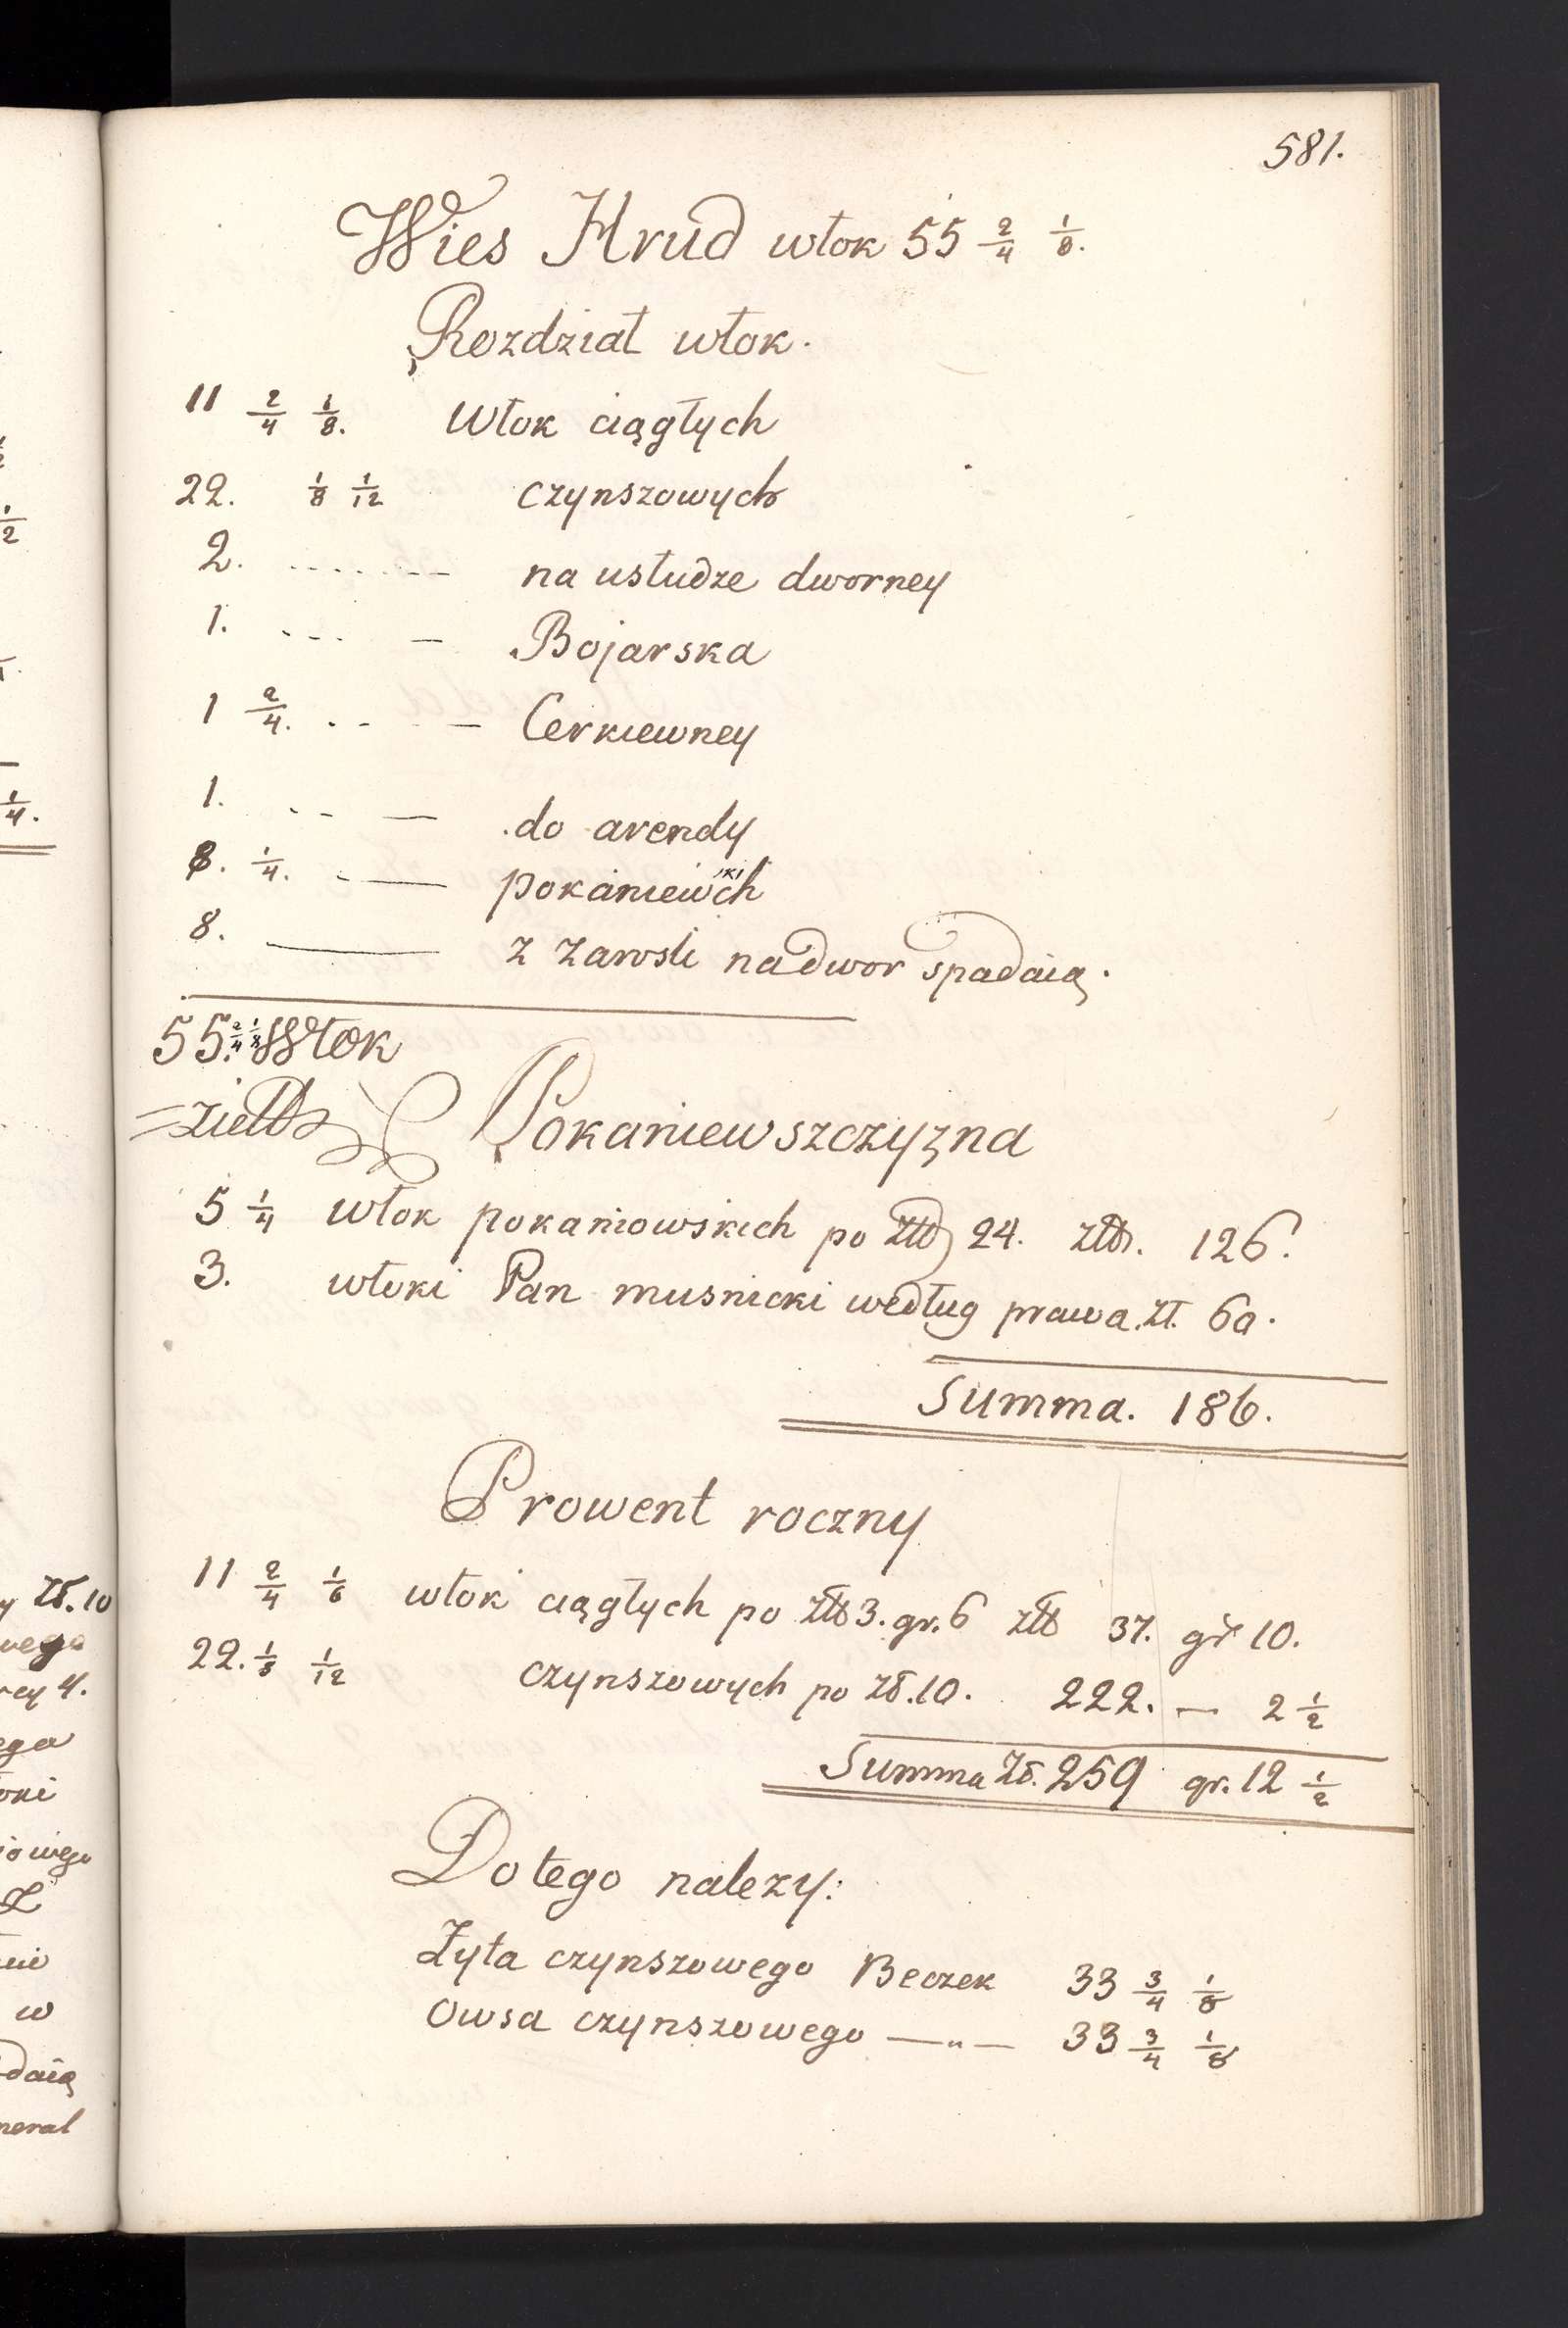 581.
Wies Hrud włok 55 2/4 1/8.
Rozdział włok.
11 2/4 1/8. Włok ciągłych
22. 1/8 1/12 czynszowych
2. ....... — na usłudze dworney
1. ... — Bojarska
1 2/4. .. — Cerkiewney
1. .. — do arendy
8. 1/4. — pokaniewskich
8. — z zarosli na dwor spadaią.
55. 2/4 1/8 Włok
Pokaniewszczyzna
5 1/4 włok pokaniowskich po złł 24. złł. 126.
3. włoki Pan musnicki według prawa. zł. 60.
Summa. 186.
Prowent roczny
11 2/4 1/6 włok ciągłych po złł 3. gr. 6 złł 37. gr 10.
22. 1/8 1/12 czynszowych po zł. 10. 222. — 2 1/2
Summa Zł. 259 gr. 12 1/2
Do tego nalezy:
Żyta czynszowego Beczek 33 3/4 1/8
Owsa czynszowego —„— 33 3/4 1/8
zł. 10
4.
daią
neral